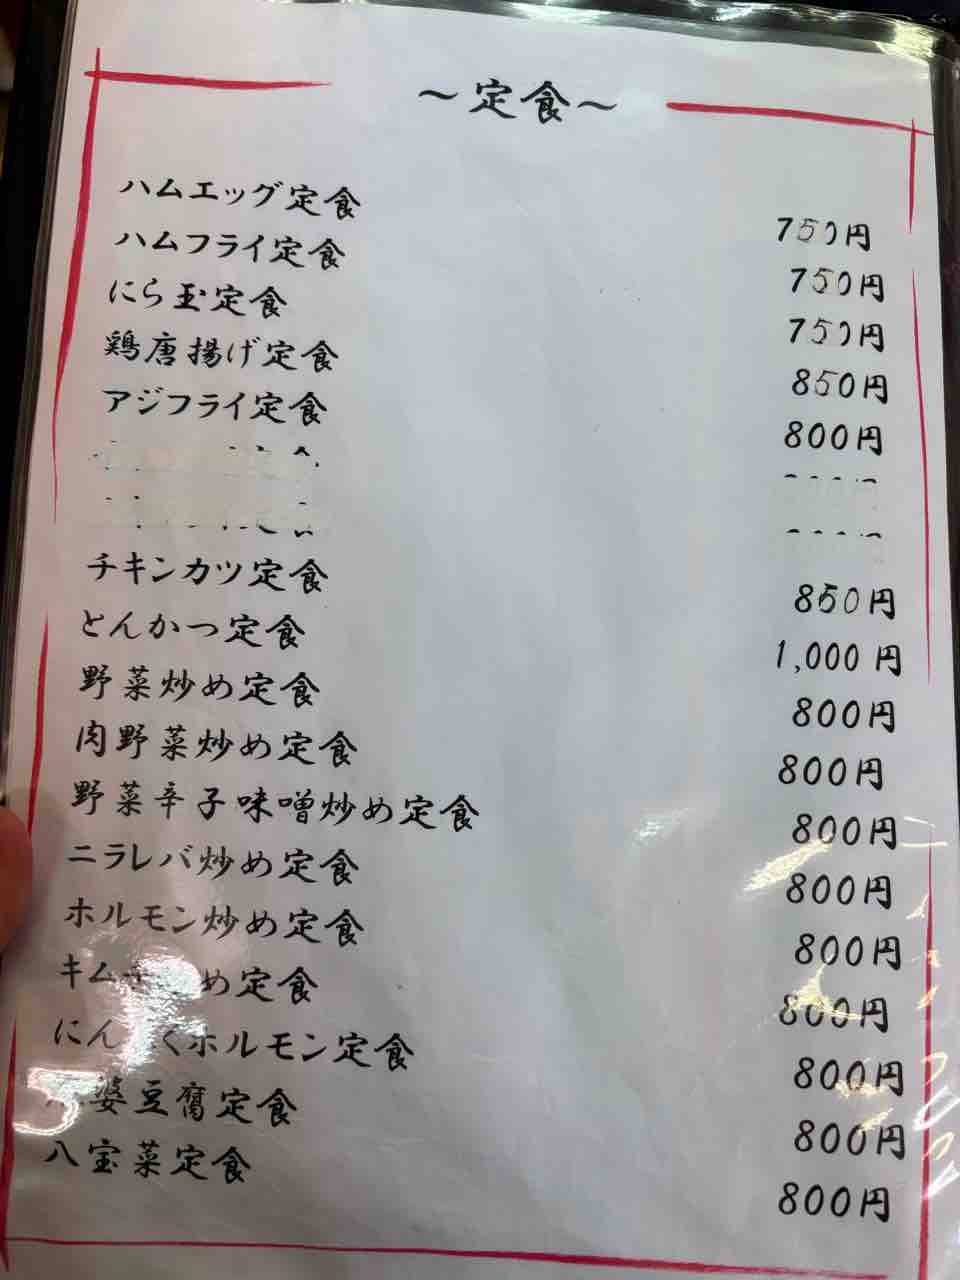 ~定食~
ハムエッグ定食 750円
ハムフライ定食 750円
にら玉定食 750円
鶏唐揚げ定食 850円
アジフライ定食 800円
チキンカツ定食 850円
とんかつ定食 1,000円
野菜炒め定食 800円
肉野菜炒め定食 800円
野菜辛子味噌炒め定食 800円
ニラレバ炒め定食 800円
ホルモン炒め定食 800円
キムチ炒め定食 800円
にんにくホルモン定食 800円
麻婆豆腐定食 800円
八宝菜定食 800円